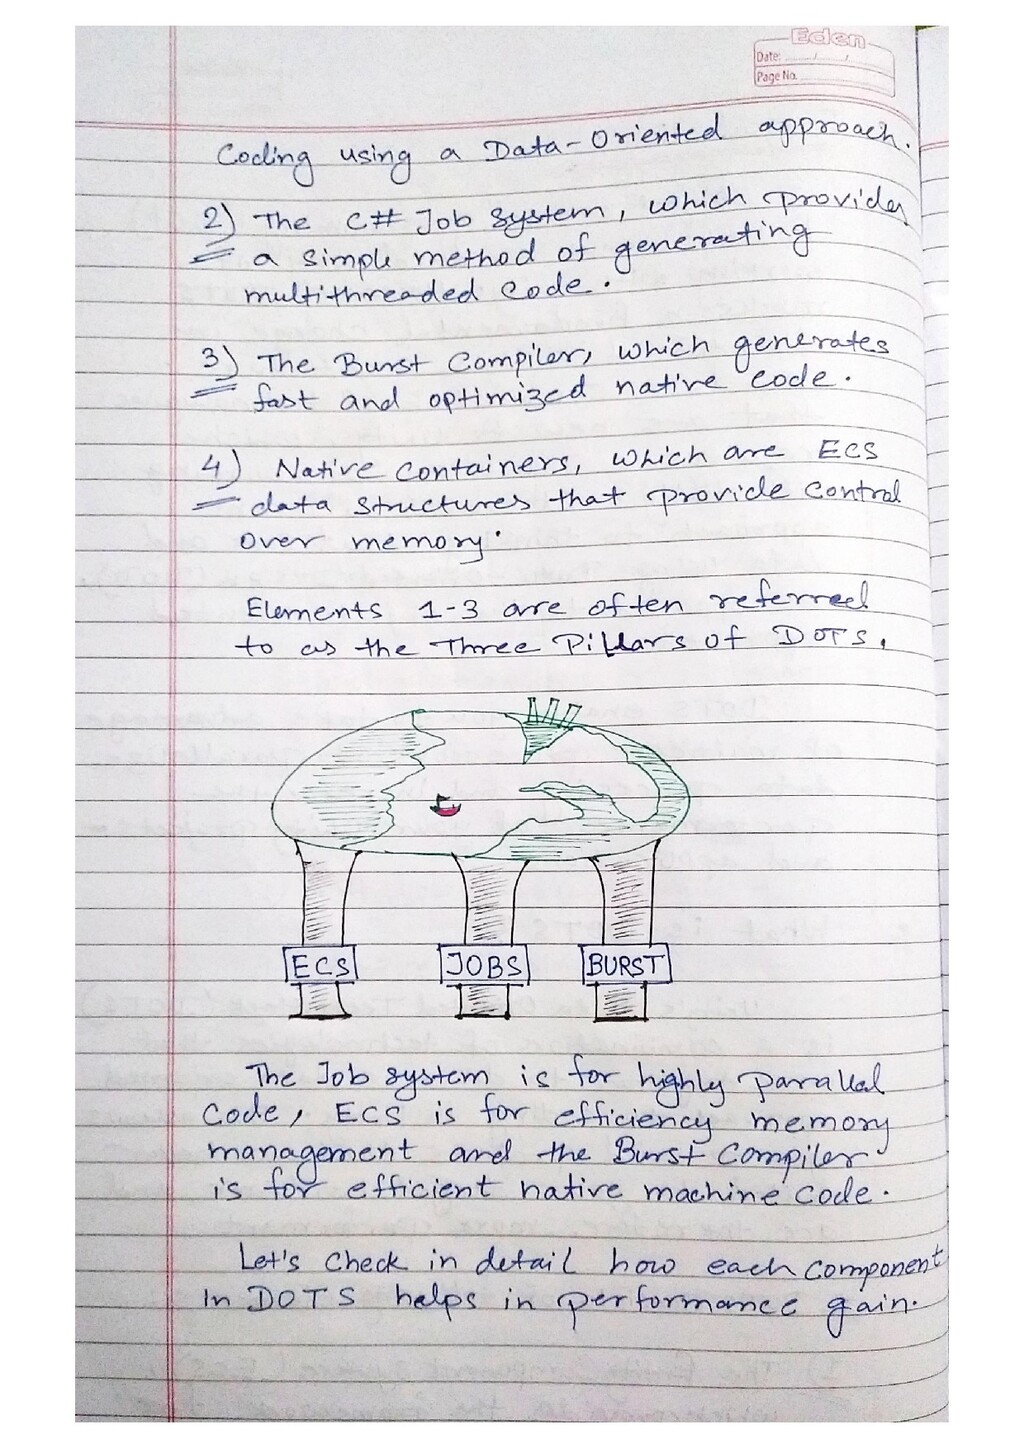 Eden
Date:
Page No.
Coding using a Data-Oriented approach.
2) The C# Job System, which provides
a simple method of generating
multithreaded code.
3) The Burst Compiler, which generates
fast and optimized native code.
4) Native containers, which are ECS
data structures that provide control
over memory.
Elements 1-3 are often referred
to as the Three Pillars of DOTS.
ECS JOBS BURST
The Job system is for highly parallel
code, ECS is for efficiency memory
management and the Burst Compiler
is for efficient native machine code.
Let's check in detail how each component
in DOTS helps in performance gain.